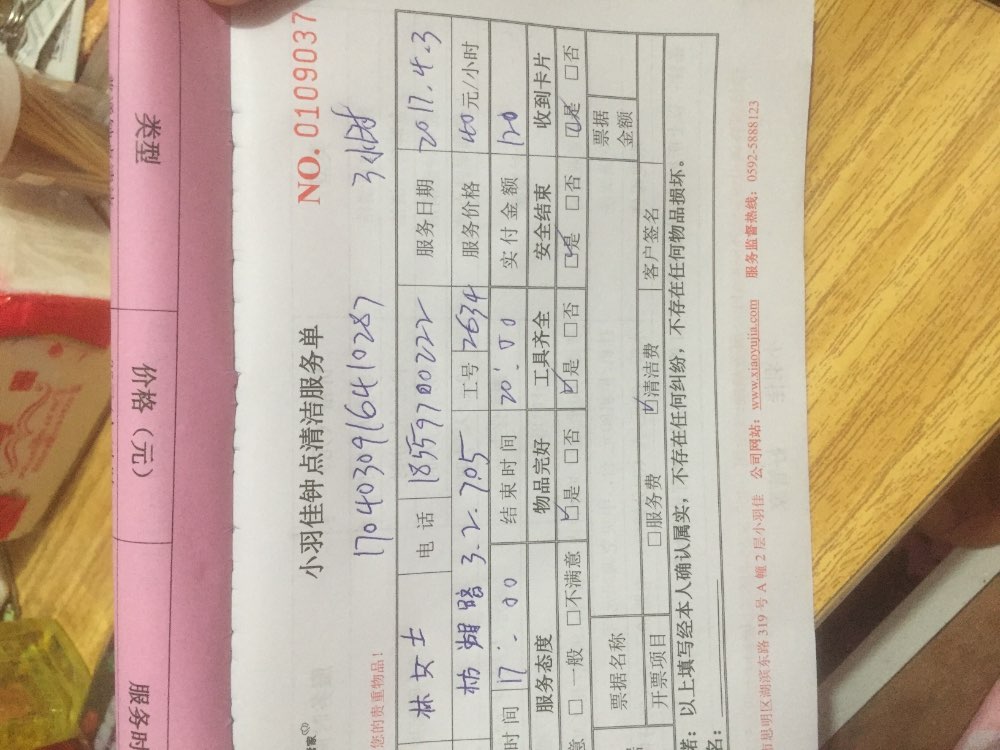 类型
价格（元）
服务时
NO. 0109037
小羽佳钟点清洁服务单
1704030916410287
您的贵重物品！
林女士 电话 18559700222 服务日期 2017.4.3
枋湖路3.2.705 工号 2634 服务价格 40元/小时
时间 17:00 结束时间 20:00 实付金额 120
服务态度 物品完好 工具齐全 安全结束 收到卡片
意 □一般 □不满意 ☑是 □否 ☑是 □否 ☑是 □否 ☑是 □否
票据名称 票据金额
开票项目 □服务费 ☑清洁费 客户签名
诺：以上填写经本人确认属实，不存在任何纠纷，不存在任何物品损坏。
名：
市思明区湖滨东路 319 号 A 幢 2 层小羽佳 公司网站：www.xiaoyujia.com 服务监督热线：0592-5888123